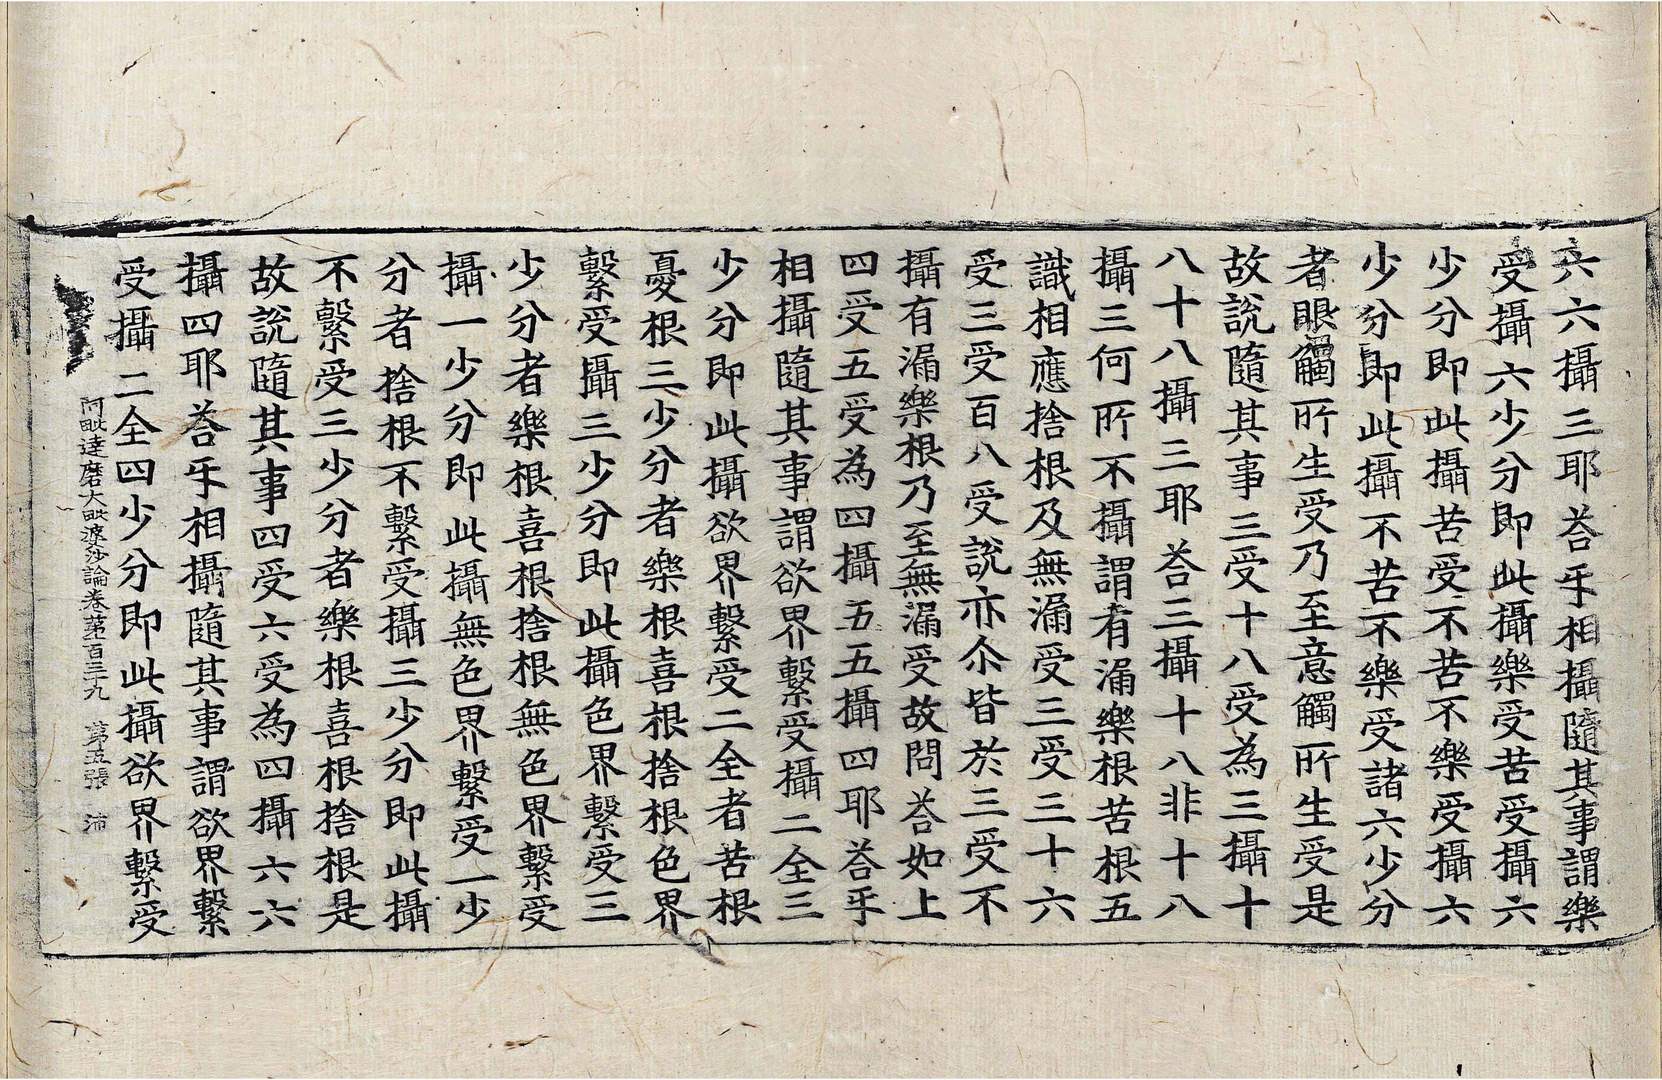 六六攝三耶荅乎相攝隨其事謂樂
受攝六少分即此攝樂受苦受攝六
少分即此攝苦受不苦不樂受攝六
少分即此攝不苦不樂受諸六少分
者眼觸所生受乃至意觸所生受是
故說隨其事三受十八受為三攝十
八十八攝三耶荅三攝十八非十八
攝三何所不攝謂有漏樂根苦根五
識相應捨根及無漏受三受三十六
受三受百八受說亦尒皆於三受不
攝有漏樂根乃至無漏受故問荅如上
四受五受為四攝五五攝四耶荅乎
相攝隨其事謂欲界繫受攝二全三
少分即此攝欲界繫受二全者苦根
憂根三少分者樂根喜根捨根色界
繫受攝三少分即此攝色界繫受三
少分者樂根喜根捨根無色界繫受
攝一少分即此攝無色界繫受一少
分者捨根不繫受攝三少分即此攝
不繫受三少分者樂根喜根捨根是
故說隨其事四受六受為四攝六六
攝四耶荅乎相攝隨其事謂欲界繫
受攝二全四少分即此攝欲界繫受
阿毗達磨大毗婆沙論卷第一百三十九 第五張 沛